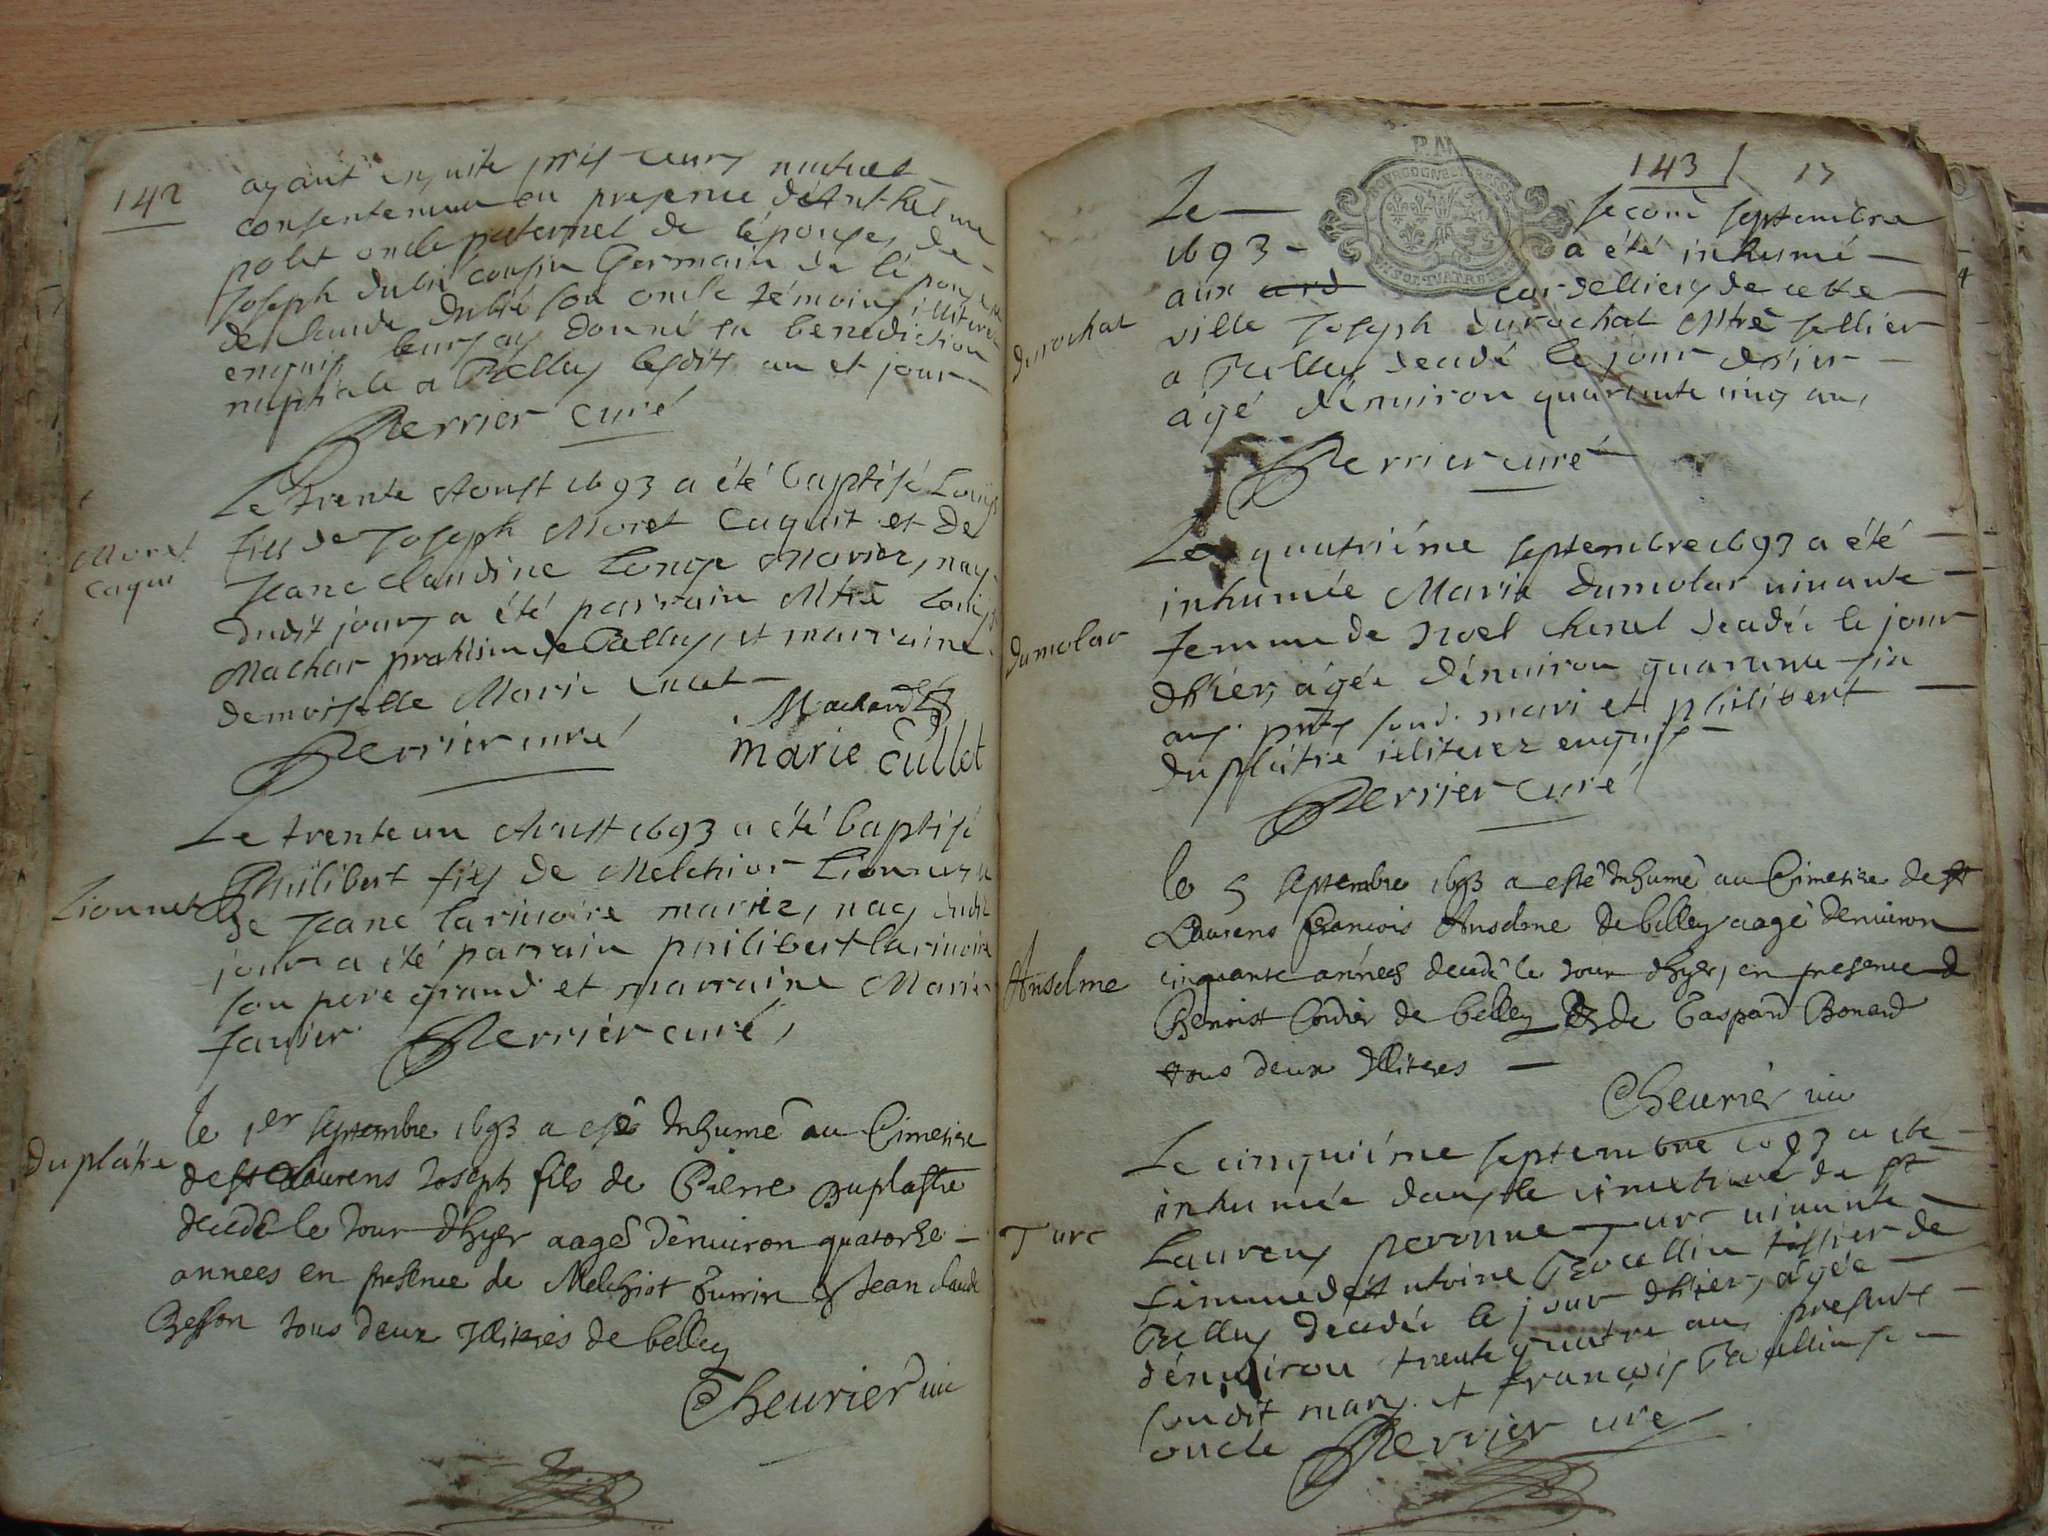 142
ayant ensuite pris leurs mutuel
consentement en presence d'Anthelme
polet oncle paternel de l'épouse, de
Joseph dubié cousin Germain de l'épouse
de claude dubié son oncle témoins illiterez
enquis leurs ay donné la benediction
nuptiale a Belley lesdits an et jour
Perrier curé
Moret
caquit
Le trente Aoust 1693 a été baptisé Louys
fils de Joseph Moret Caquit et de
Jeane Claudine Longe Mariez, nay
dudit jour, a été parrain Mtre Louys
Machar praticien de Belley, et marraine
demoiselle Marie Cucet
Machard
Perrier curé
marie Cullet
Lionnet
Le trente un Aoust 1693 a été baptisé
Philibert fils de Melchior Lionnet
de Jeane larivoire mariez, nay dudit
jour a été parrain philibert larivoire
son pere grand et marraine Marie
favier Perrier curé
du plâtre
le 1er septembre 1693 a esté Inhumé au Cimetire
de St Laurens Joseph fils de Pierre Duplastre
decedé le Jour d'hyer aagé d'enuiron quatorze
annees en presence de Melchiot & Jean claude
Besson tous deux Illiterés de belley
Cheurier vic
143 17
Le second septembre
1693 a été inhumé
aux cordelliers de cette
durochat
ville Joseph durochat Mtre sellier
a Belley decedé le jour d'hier
âgé d'enuiron quarante cinq ans
Perrier curé
Le quatriéme septembre 1693 a été
inhumée Marie dumolar vivante
dumolar
femme de Noel chenel decedée le jour
d'hier, âgée d'enuiron quarante six
ans. pnts sond. mari et philibert
du plâtre illiterez enquis
Perrier curé
le 5 septembre 1693 a esté Inhumé au Cimetire de St
Laurens francois Anselme de belley aagé d'enuiron
Anselme
cinquante années decedé le Jour d'hyer, en presence de
Benoist Cordier de belley & de Gaspard Bonard
tous deux Illiteres
Cheurier vic
Le cinquiéme septembre 1693 a été
inhumée dans le cimetiere de St
Turc
Laurens peronne Turc vivante
femme d'Antoine tissier de
Belley decedée le jour d'hier, âgée
d'enuiron trente quatre ans presents
sondit mary et françois son
oncle Perrier curé